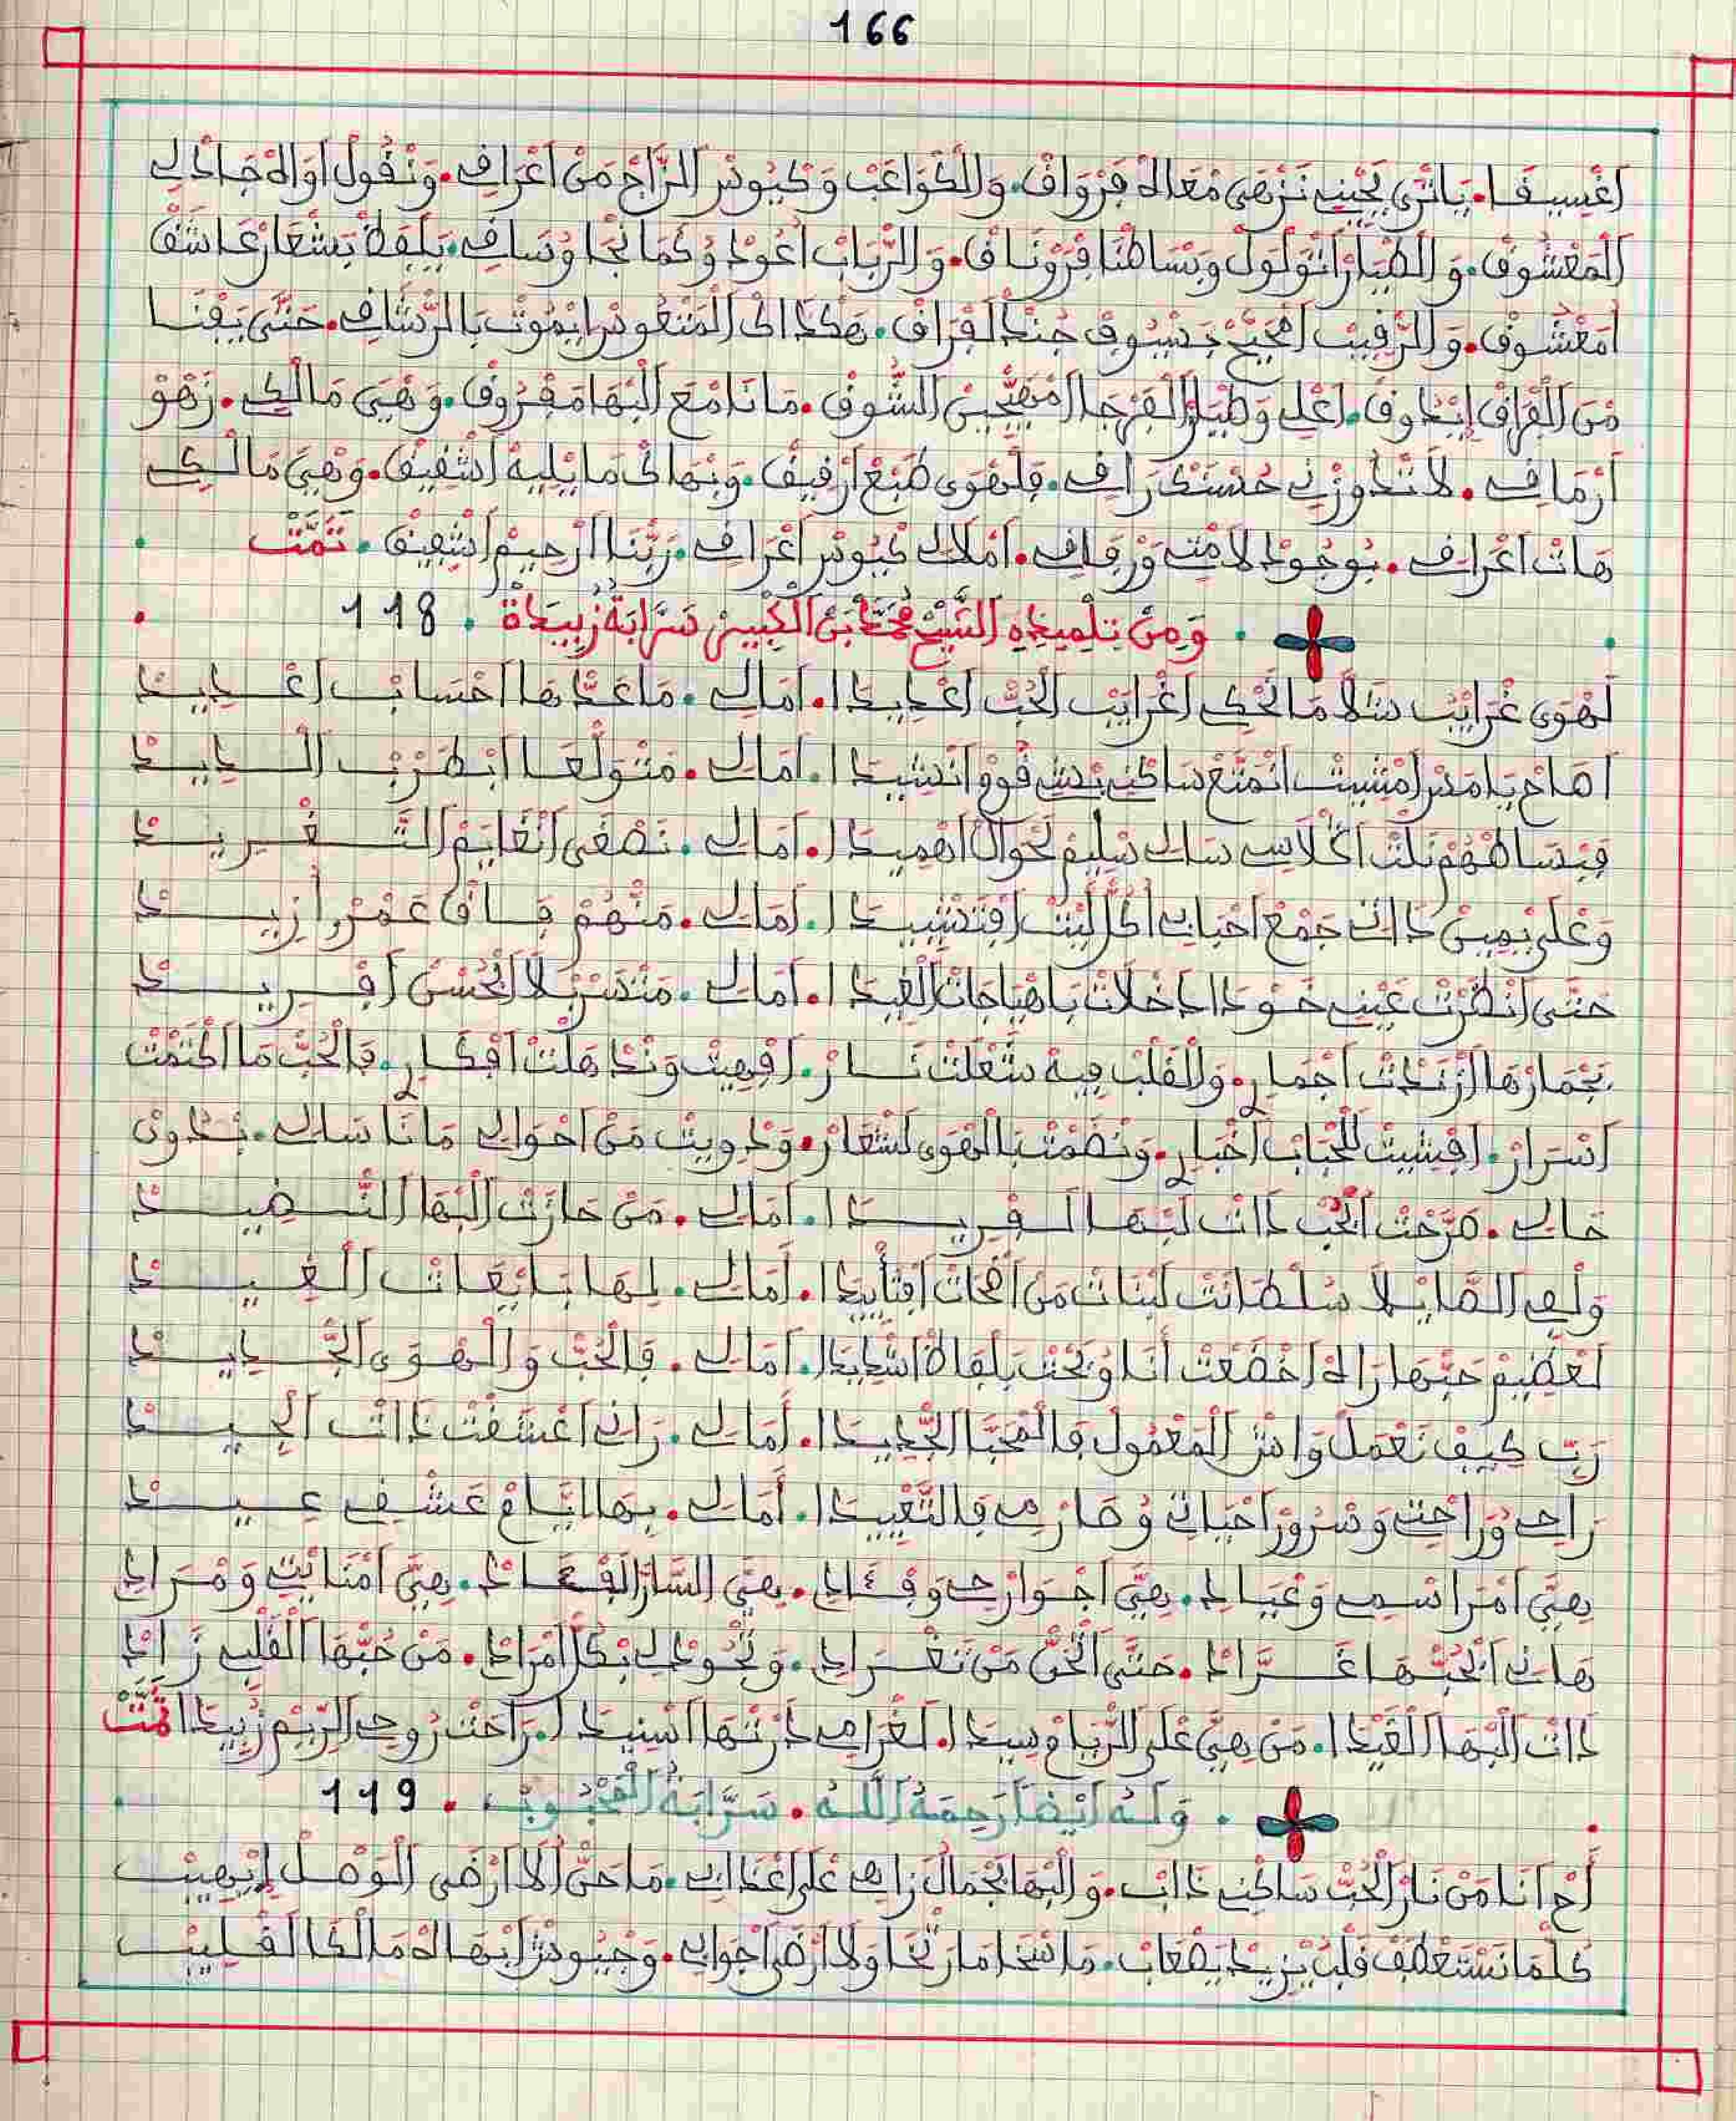 166
اغسيفا. ياترى يحيني نزهى معاه فرواق. والكواعب وكيوس الراح من اعراق. ونقول اواه جاد لي
المعشوق. والطيار اتولول وبساطنا فرونـاق. والرباب اعود وكمانجا وساق. يلفظ بشعار عاشق
امعشوق. والرقيب بسيوف جند الفراق. هكذاك المنعوس ايموت بالرشاق. حتى يفنـا
من الفراق ايذوق. اعلي وطيار الفرجا امهيجين الشوق. مانا مع البها مفروق. وهي مالكي. زهو
ارماقي. لا تدوزني حستكراقي. فلهوى طبع ارفيق. ونهاك ما يليه اشفيق. وهي مالكي
هات اعراقي. بوجود لامتي ورفاقي. املاك كيوس اعراقي. ربنا ارحيم اشفيق. تمت
ومن تلميذه الشيخ محمد بن الكبير سرابة زبيدة. 118
لهوى غرايب سلا ما نحكي اغرايب الحب اعديدا. امالي. ما عدها احساب اعـديـد
اصاح يامس امشيت انمتع ساكني بنشفوو انشيدا. امالي. متولعا ابطرب الـديـد
فبساطهم نلت اخلاسي سالي سليم لحوال اهميدا. امالي. نصغى انغايم التـغـريـد
وعلى يمين ذاك جمع احبابي اكل ليت افتشييدا. امالي. منهم فـاق عمر ازيـد
حتى انظرت عيني خودا ادخلات باهياجات الغيدا. امالي. متسربلا الحسن افـريـد
بجمارها ازندت اجماري. والقلب فيه شعلت نـار. افهيت وندهلت افكـاري. فالحب ما اكتمت
اسرار. افيشيت للحباب اخباري. ونضمت بالهوى لشعار. ودويت من احوالي مانا سالي. ندوى
حالي. صرحت الحب ذات لبها الـفريـدا. امالي. من حازت البها النـضيـد
ولفي الصايلا سلطانت لبنات من افخات افتأييدا. امالي. لها بايعات الـغيـد
لعظيم حبها راه اخضعت انا ونحت بلفاظ اشديدا. امالي. فالحب والهوى الجـديـد
ربي كيف نعمل واش المعمول فالمحبا الجديدا. امالي. راني اعشقت ذات الجيـد
راحي وراحتي وسرور احياتي وصارمي فالتغييدا. امالي. بها ايام عشقي عـيـد
هي امراسمي وعيادي. هي اجوارحي وفـؤادي. هي السار الفـؤاد. هي امنايتي ومرادي
هاني الحبها غـراد. حتى الخن من نغـرادي. ونجود لي بكل امرادي. من حبها القلب زاد
ذات البها القيدا. من هي على الريام سيدا. لغرامي دارتها اسنيدا. راحت روحي الريم زبيدا تمت
وله ايضا رحمه الله. سرابة المحبوب. 119
أح انا من نار الحب ساكني ذاب. والبها بجمال زاهي على اعذابي. ما حن الا ارضى الوصل ايهيب
كلما نستعطف قلب يزيد يصعاب. ما اسخا ما رتخا ولا ارضى اجوابي. وجيوش ابهاه مالكا لقليب